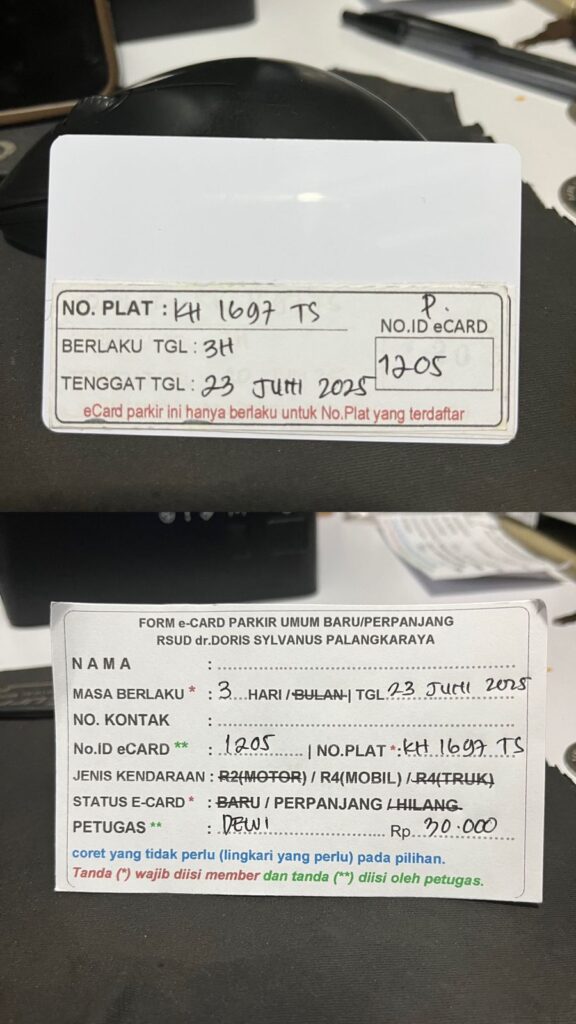 NO. PLAT : KH 1697 TS
BERLAKU TGL : 3H
TENGGAT TGL : 23 JUNI 2025
P.
NO.ID eCARD
1205
eCard parkir ini hanya berlaku untuk No.Plat yang terdaftar
FORM e-CARD PARKIR UMUM BARU/PERPANJANG
RSUD dr.DORIS SYLVANUS PALANGKARAYA
N A M A :
MASA BERLAKU * : 3 HARI / BULAN | TGL 23 JUNI 2025
NO. KONTAK :
No.ID eCARD ** : 1205 | NO.PLAT *: KH 1697 TS
JENIS KENDARAAN : R2(MOTOR) / R4(MOBIL) / R4(TRUK)
STATUS E-CARD * : BARU / PERPANJANG / HILANG
PETUGAS ** : DEWI Rp. 30.000
coret yang tidak perlu (lingkari yang perlu) pada pilihan.
Tanda (*) wajib diisi member dan tanda (**) diisi oleh petugas.